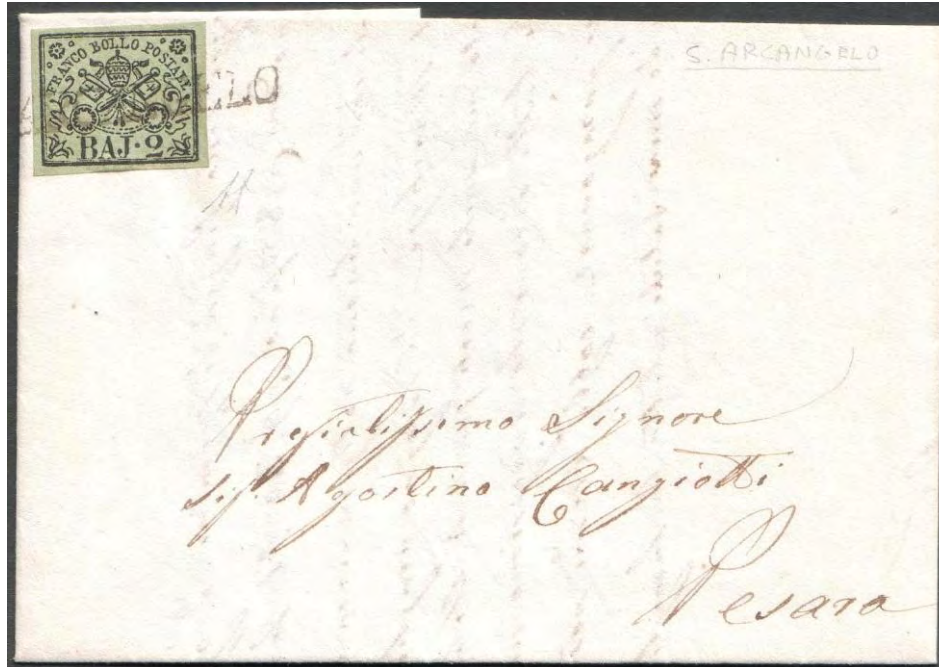 FRANCO BOLLO POSTALE
BAJ·2
ELO
S. ARCANGELO
Pregiatissimo Signore
Sig. Agostino Cangiotti
Pesaro